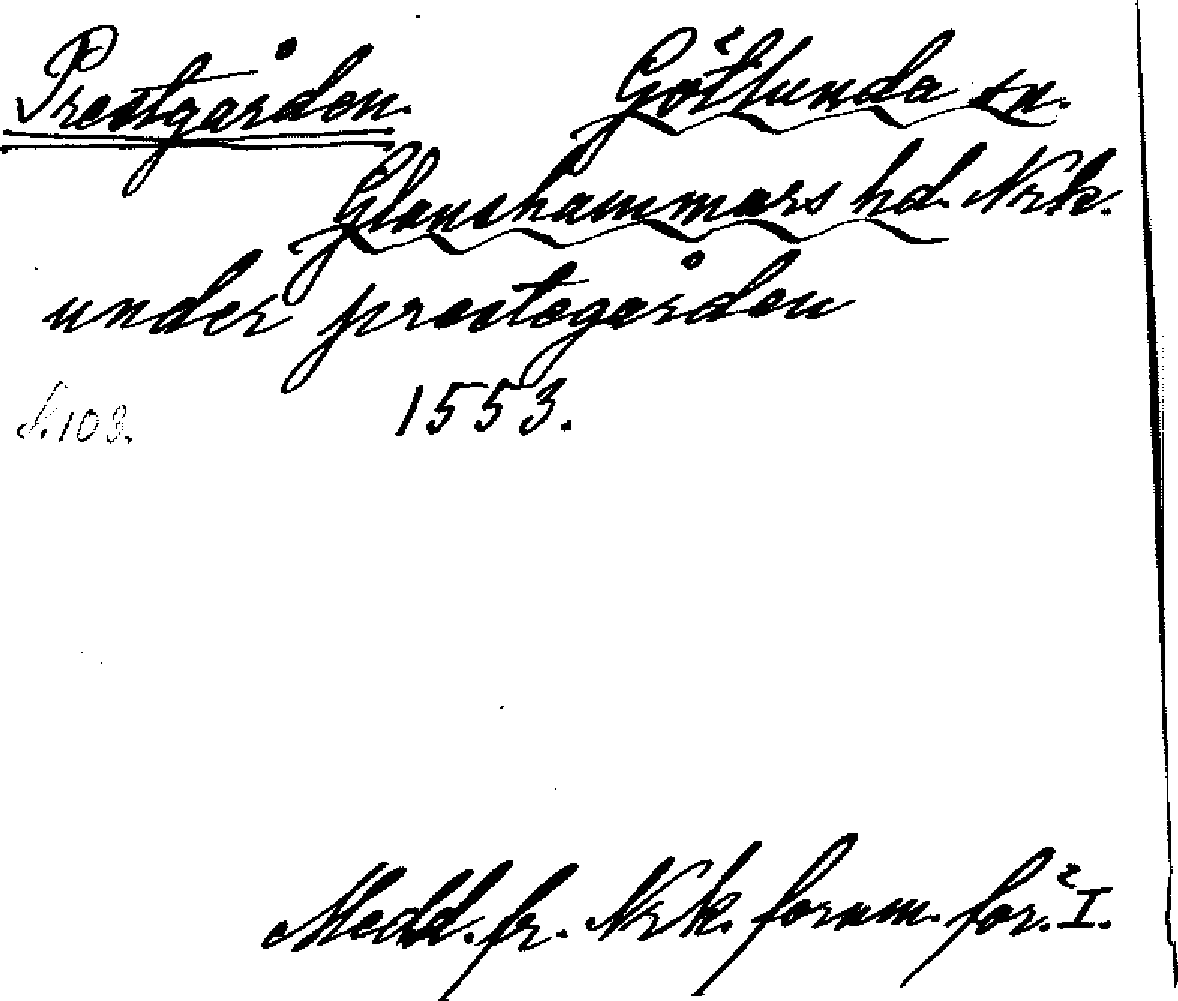 Prestgården. Götlunda sn.
Glanshammars hd. Nrk.
under prestegården
s. 108. 1553.
Medd. fr. Nrk. fornm. för. I.